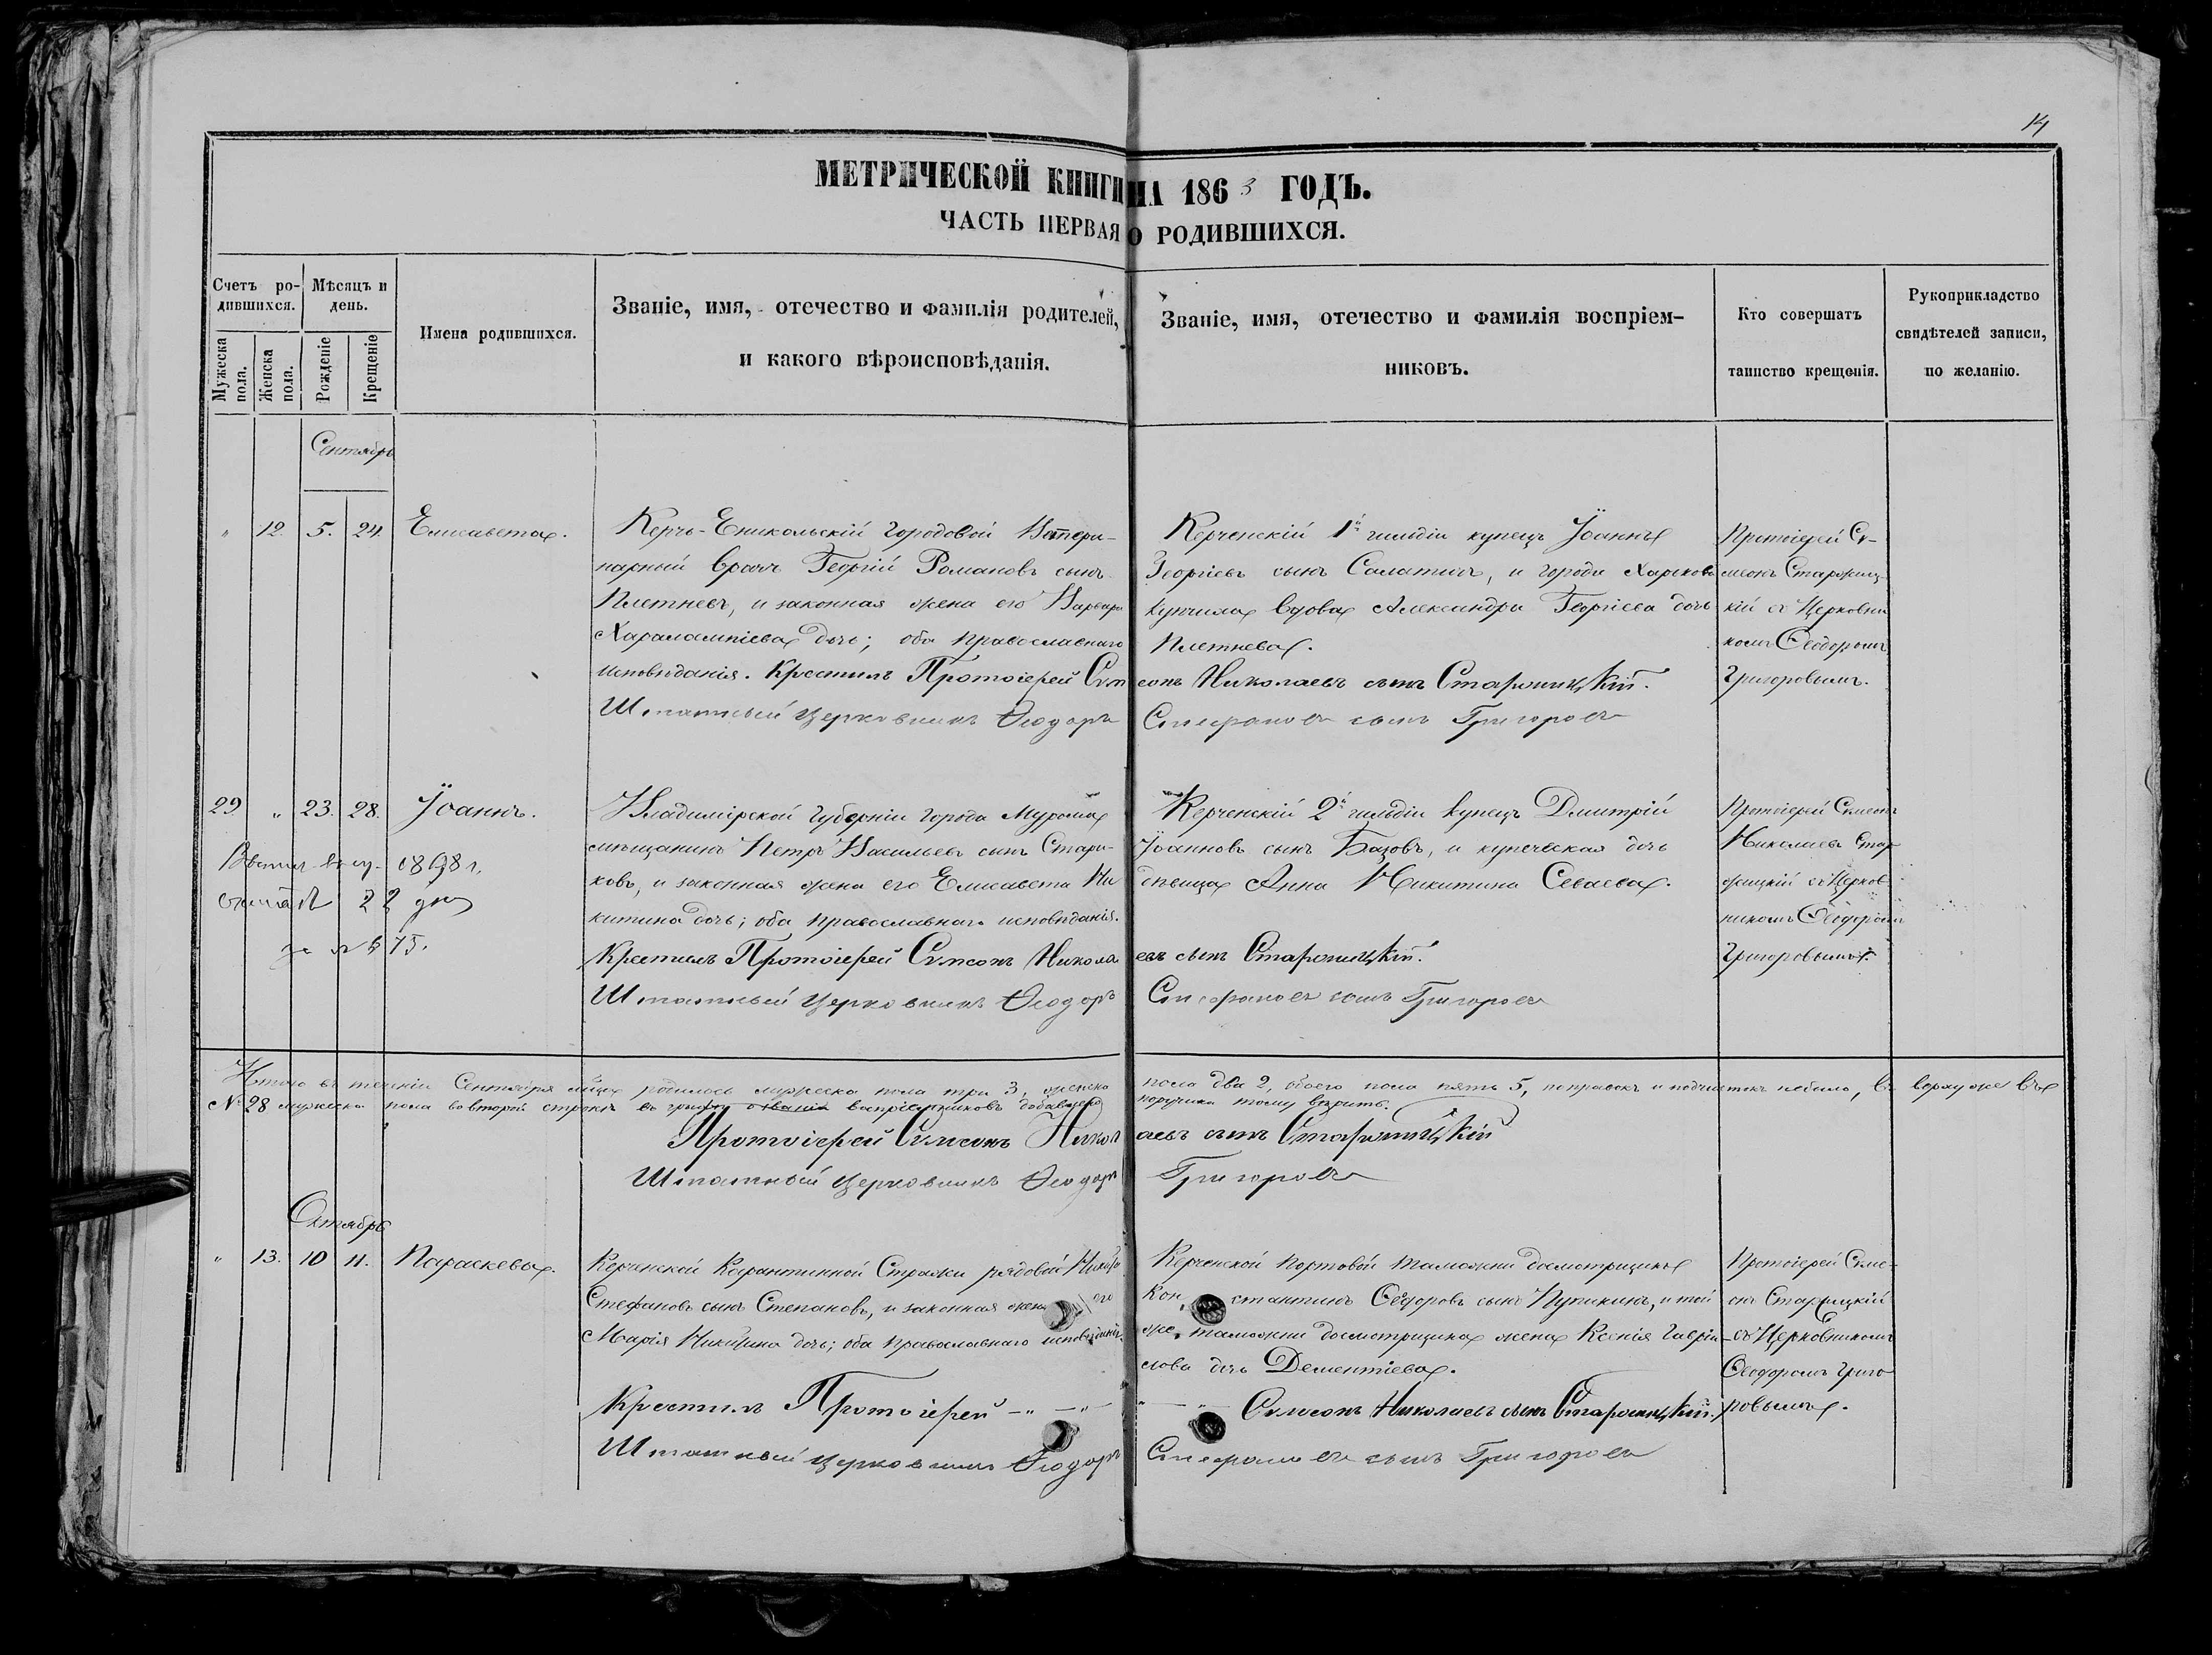 14
МЕТРИЧЕСКОЙ КНИГИ НА 1863 ГОДЪ.
ЧАСТЬ ПЕРВАЯ О РОДИВШИХСЯ.
Счетъ ро-
дившихся.
Мужеска пола.
Женска пола.
Мѣсяцъ и
день.
Рожденіе
Крещеніе
Имена родившихся.
Званіе, имя, отечество и фамилія родителей,
и какого вѣроисповѣданія.
Званіе, имя, отечество и фамилія воспріем-
никовъ.
Кто совершатъ
таинство крещенія.
Рукоприкладство
свидѣтелей записи,
по желанію.
Сентябрь
" 12. 5. 24. Елисавета.
Керчь-Еникольскій городовой Ветери-
нарный врачъ Георгій Романовъ сынъ
Плетневъ, и законная жена его Варвара
Харалампіева дочь; оба православнаго
исповѣданія. Крестилъ Протоіерей Сѵмеонъ Николаевъ сынъ Старожицкій.
Штатный церковникъ Ѳеодоръ Стефановъ сынъ Григоровъ
Керченскій 1й гильдіи купецъ Іоаннъ
Георгіевъ сынъ Салатинъ, и города Харькова
купчиха вдова Александра Георгіева дочь
Плетнева.
Протоіерей Сѵ-
меонъ Старожиц-
кій съ Церковни
комъ Ѳеодоромъ
Григоровымъ.
29 " 23. 28. Іоаннъ.
1898 г.
22
за № 675.
Владимірской губерніи города Мурома
мѣщанинъ Петръ Васильевъ сынъ Стари-
ковъ, и законная жена его Елисавета Ни
китина дочь; оба православнаго исповѣданія.
Крестилъ Протоіерей Сѵмеонъ Николаевъ сынъ Старожицкій.
Штатный церковникъ Ѳеодоръ Стефановъ сынъ Григоровъ
Керченскій 2й гильдіи купецъ Дмитрій
Іоанновъ сынъ Базовъ, и купеческая дочь
дѣвица Анна Никитина Севаева.
Протоіерей Сѵмеонъ
Николаевъ Стар
жицкій съ Церков
никомъ Ѳеодоромъ
Григоровымъ.
Итого въ теченіи Сентября мѣсяца родилось мужеска пола три 3, женска пола два 2, обоего пола пять 5, поправокъ и подчистокъ небыло,
№ 28 мужеска пола во второй строкѣ въ графѣ о званіи воспріемниковъ добавлено поручика тому вѣрить.
Протоіерей Сѵмеонъ Николаевъ сынъ Старожицкій
Штатный церковникъ Ѳеодоръ Григоровъ
Октябрь
" 13. 10 11. Параскева.
Керченской Карантинной Стражи рядовой
Стефановъ сынъ Степановъ, и законная жена его
Марія Никитина дочь; оба православнаго исповѣданія.
Крестилъ Протоіерей -"- -"- Сѵмеонъ Николаевъ сынъ Старожицкій.
Штатный церковникъ Ѳеодоръ Стефановъ сынъ Григоровъ
Керченской портовой таможни досмотрщикъ
Константинъ Ѳеодоровъ сынъ Пупикинъ, и той
же таможни досмотрщика жена Ксенія Гаврі-
лова дочь Дементіева.
Протоіерей Сѵме-
онъ Старжицкій
съ Церковникомъ
Ѳеодоромъ Григо
ровымъ.